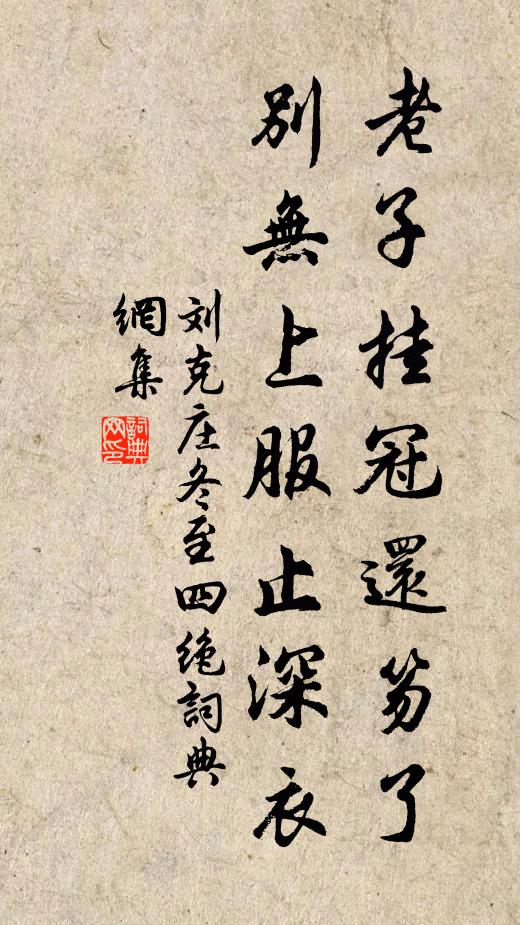 老子挂冠還笏了
別無上服止深衣
刘克庄冬至四绝詞典
網集
詞典网印